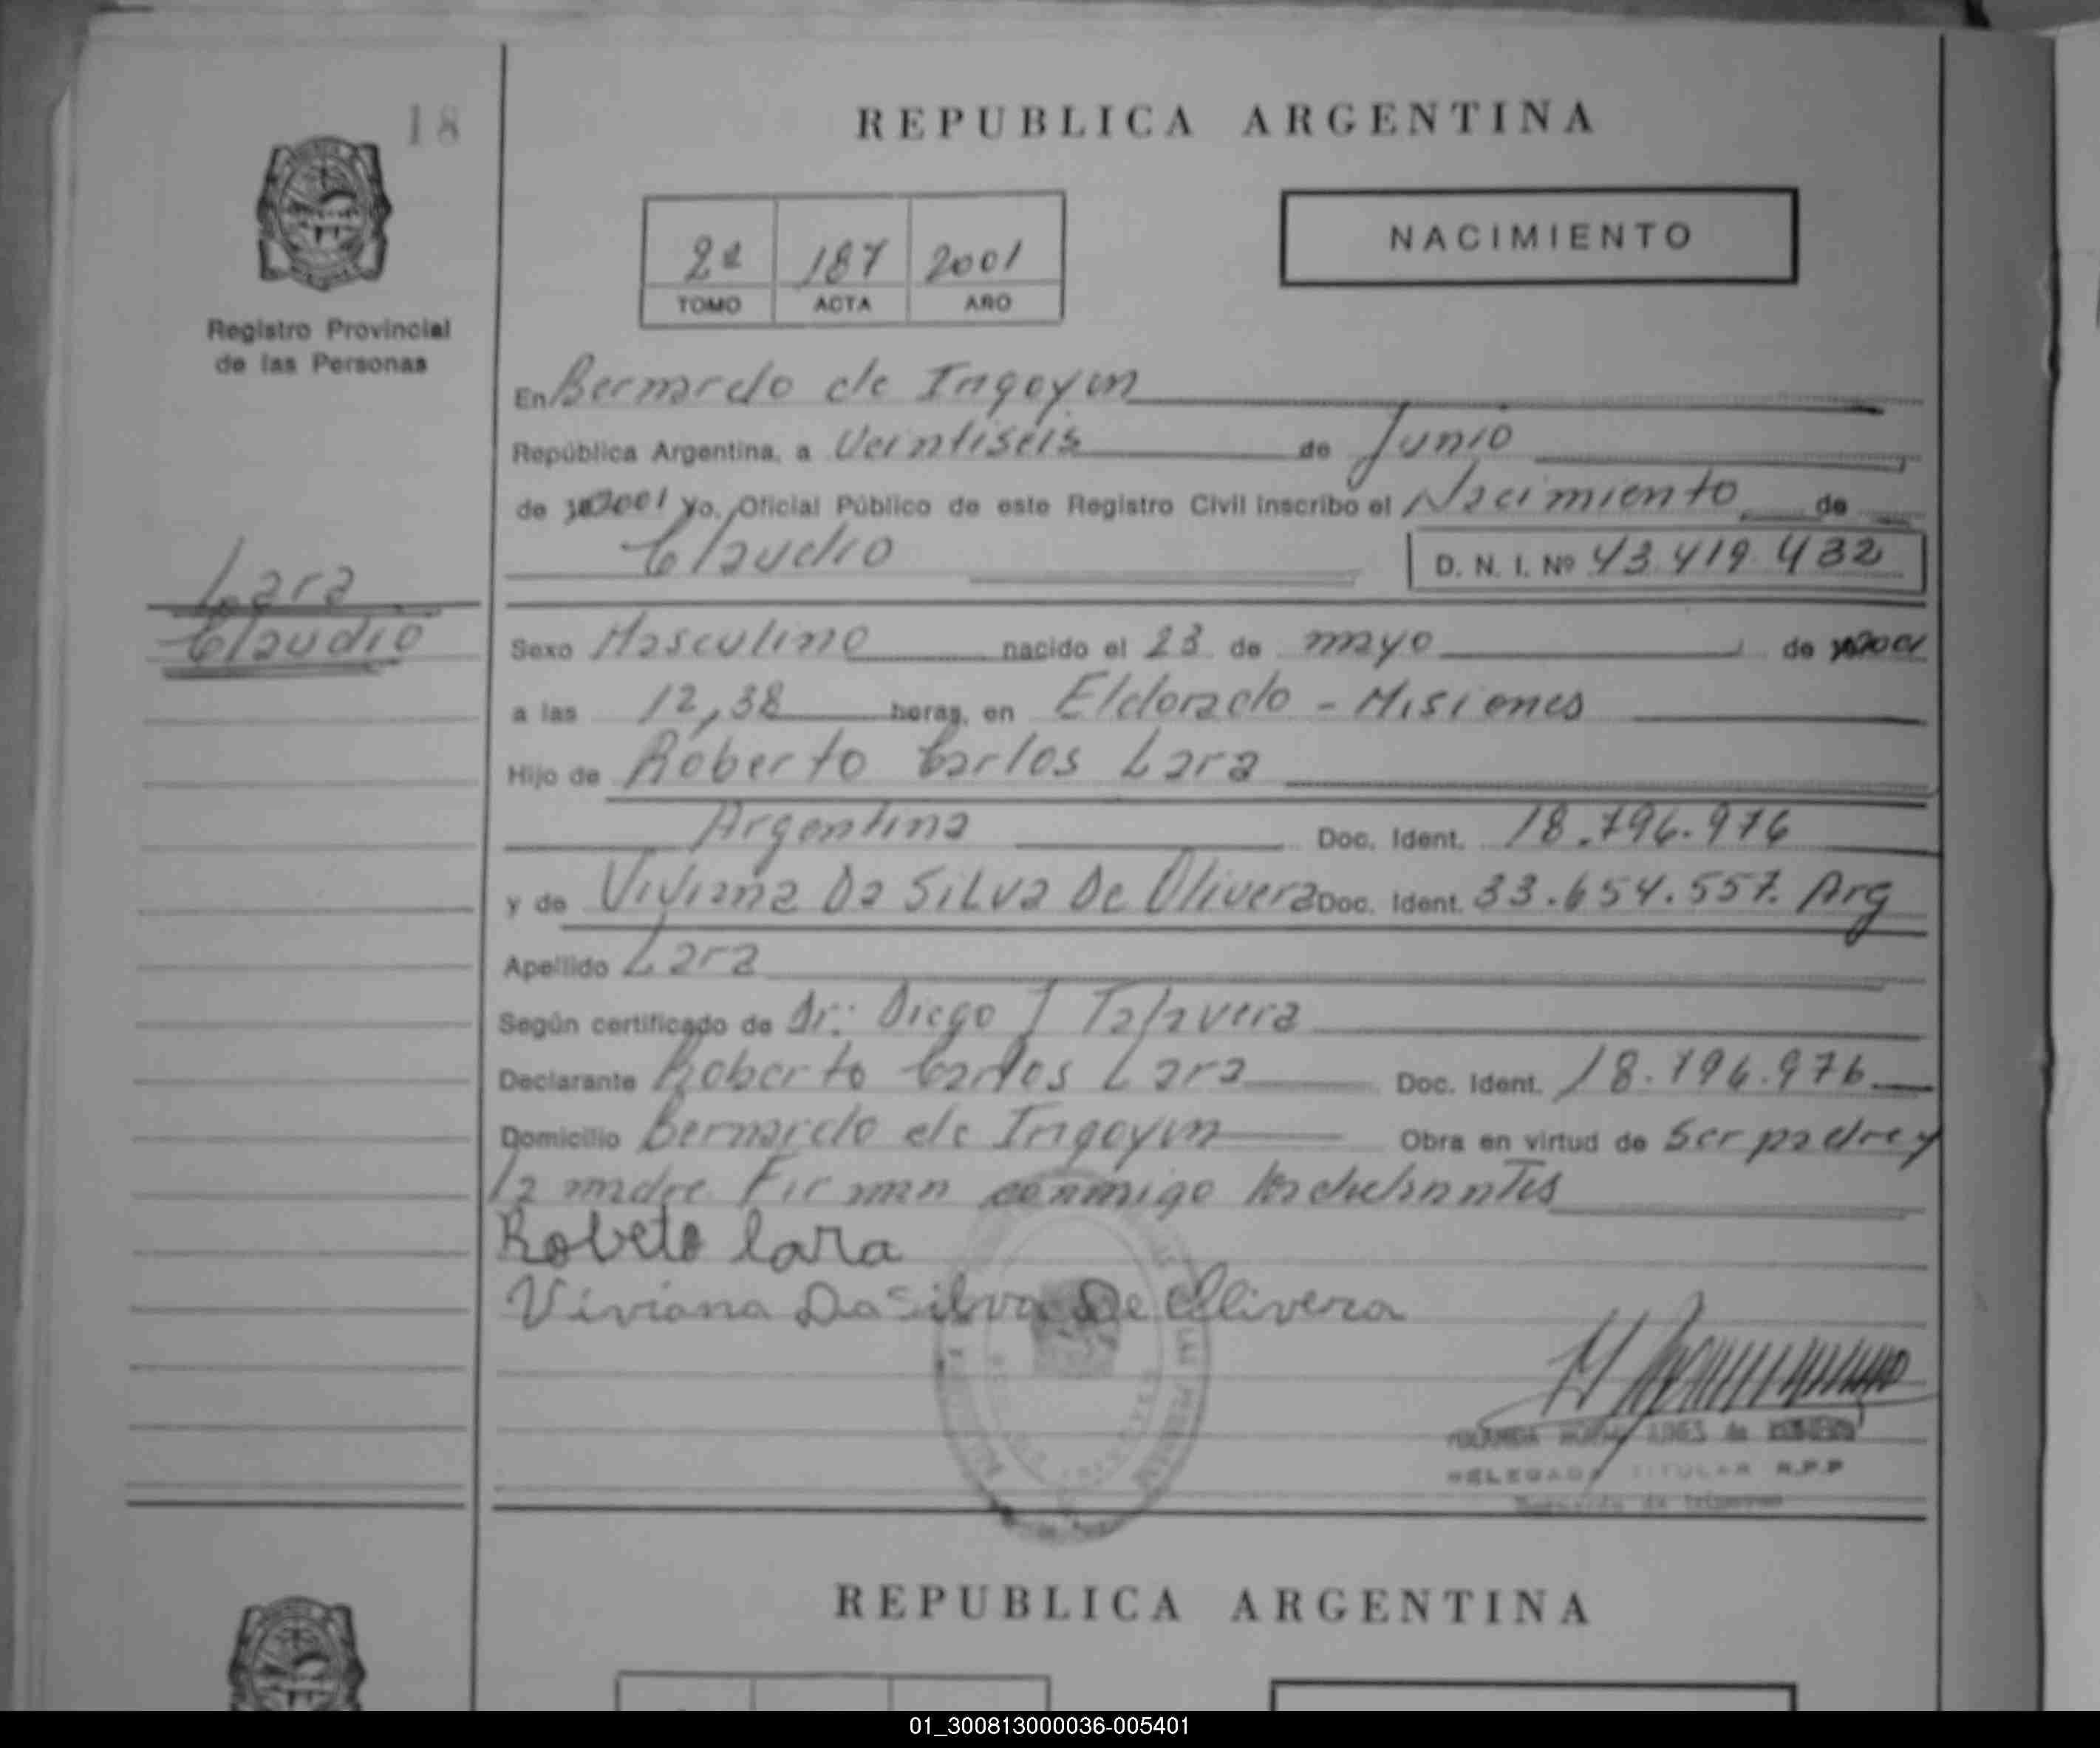 18
REPUBLICA ARGENTINA
NACIMIENTO
2ª 187 2001
TOMO ACTA AÑO
Registro Provincial
de las Personas
En Bernardo de Irigoyen
República Argentina, a Veintiséis de Junio
de 2001 Yo, Oficial Público de este Registro Civil inscribo el Nacimiento de
Claudio D. N. I. Nº 43.419.432
Lara
Claudio
Sexo Masculino nacido el 23 de mayo de 2001
a las 12,38 horas, en Eldorado - Misiones
Hijo de Roberto Carlos Lara
Argentina Doc. Ident. 18.796.976
y de Viviana Da Silva De Olivera Doc. Ident. 33.654.557. Arg
Apellido Lara
Según certificado de Dr: Diego J Talavera
Declarante Roberto Carlos Lara Doc. Ident. 18.796.976
Domicilio Bernardo de Irigoyen Obra en virtud de Ser padre y
la madre Firman conmigo
Robeto lara
Viviana Da Silva De Olivera
DELEGADA TITULAR R.P.P
Bernardo de Irigoyen
REPUBLICA ARGENTINA
01_300813000036-005401